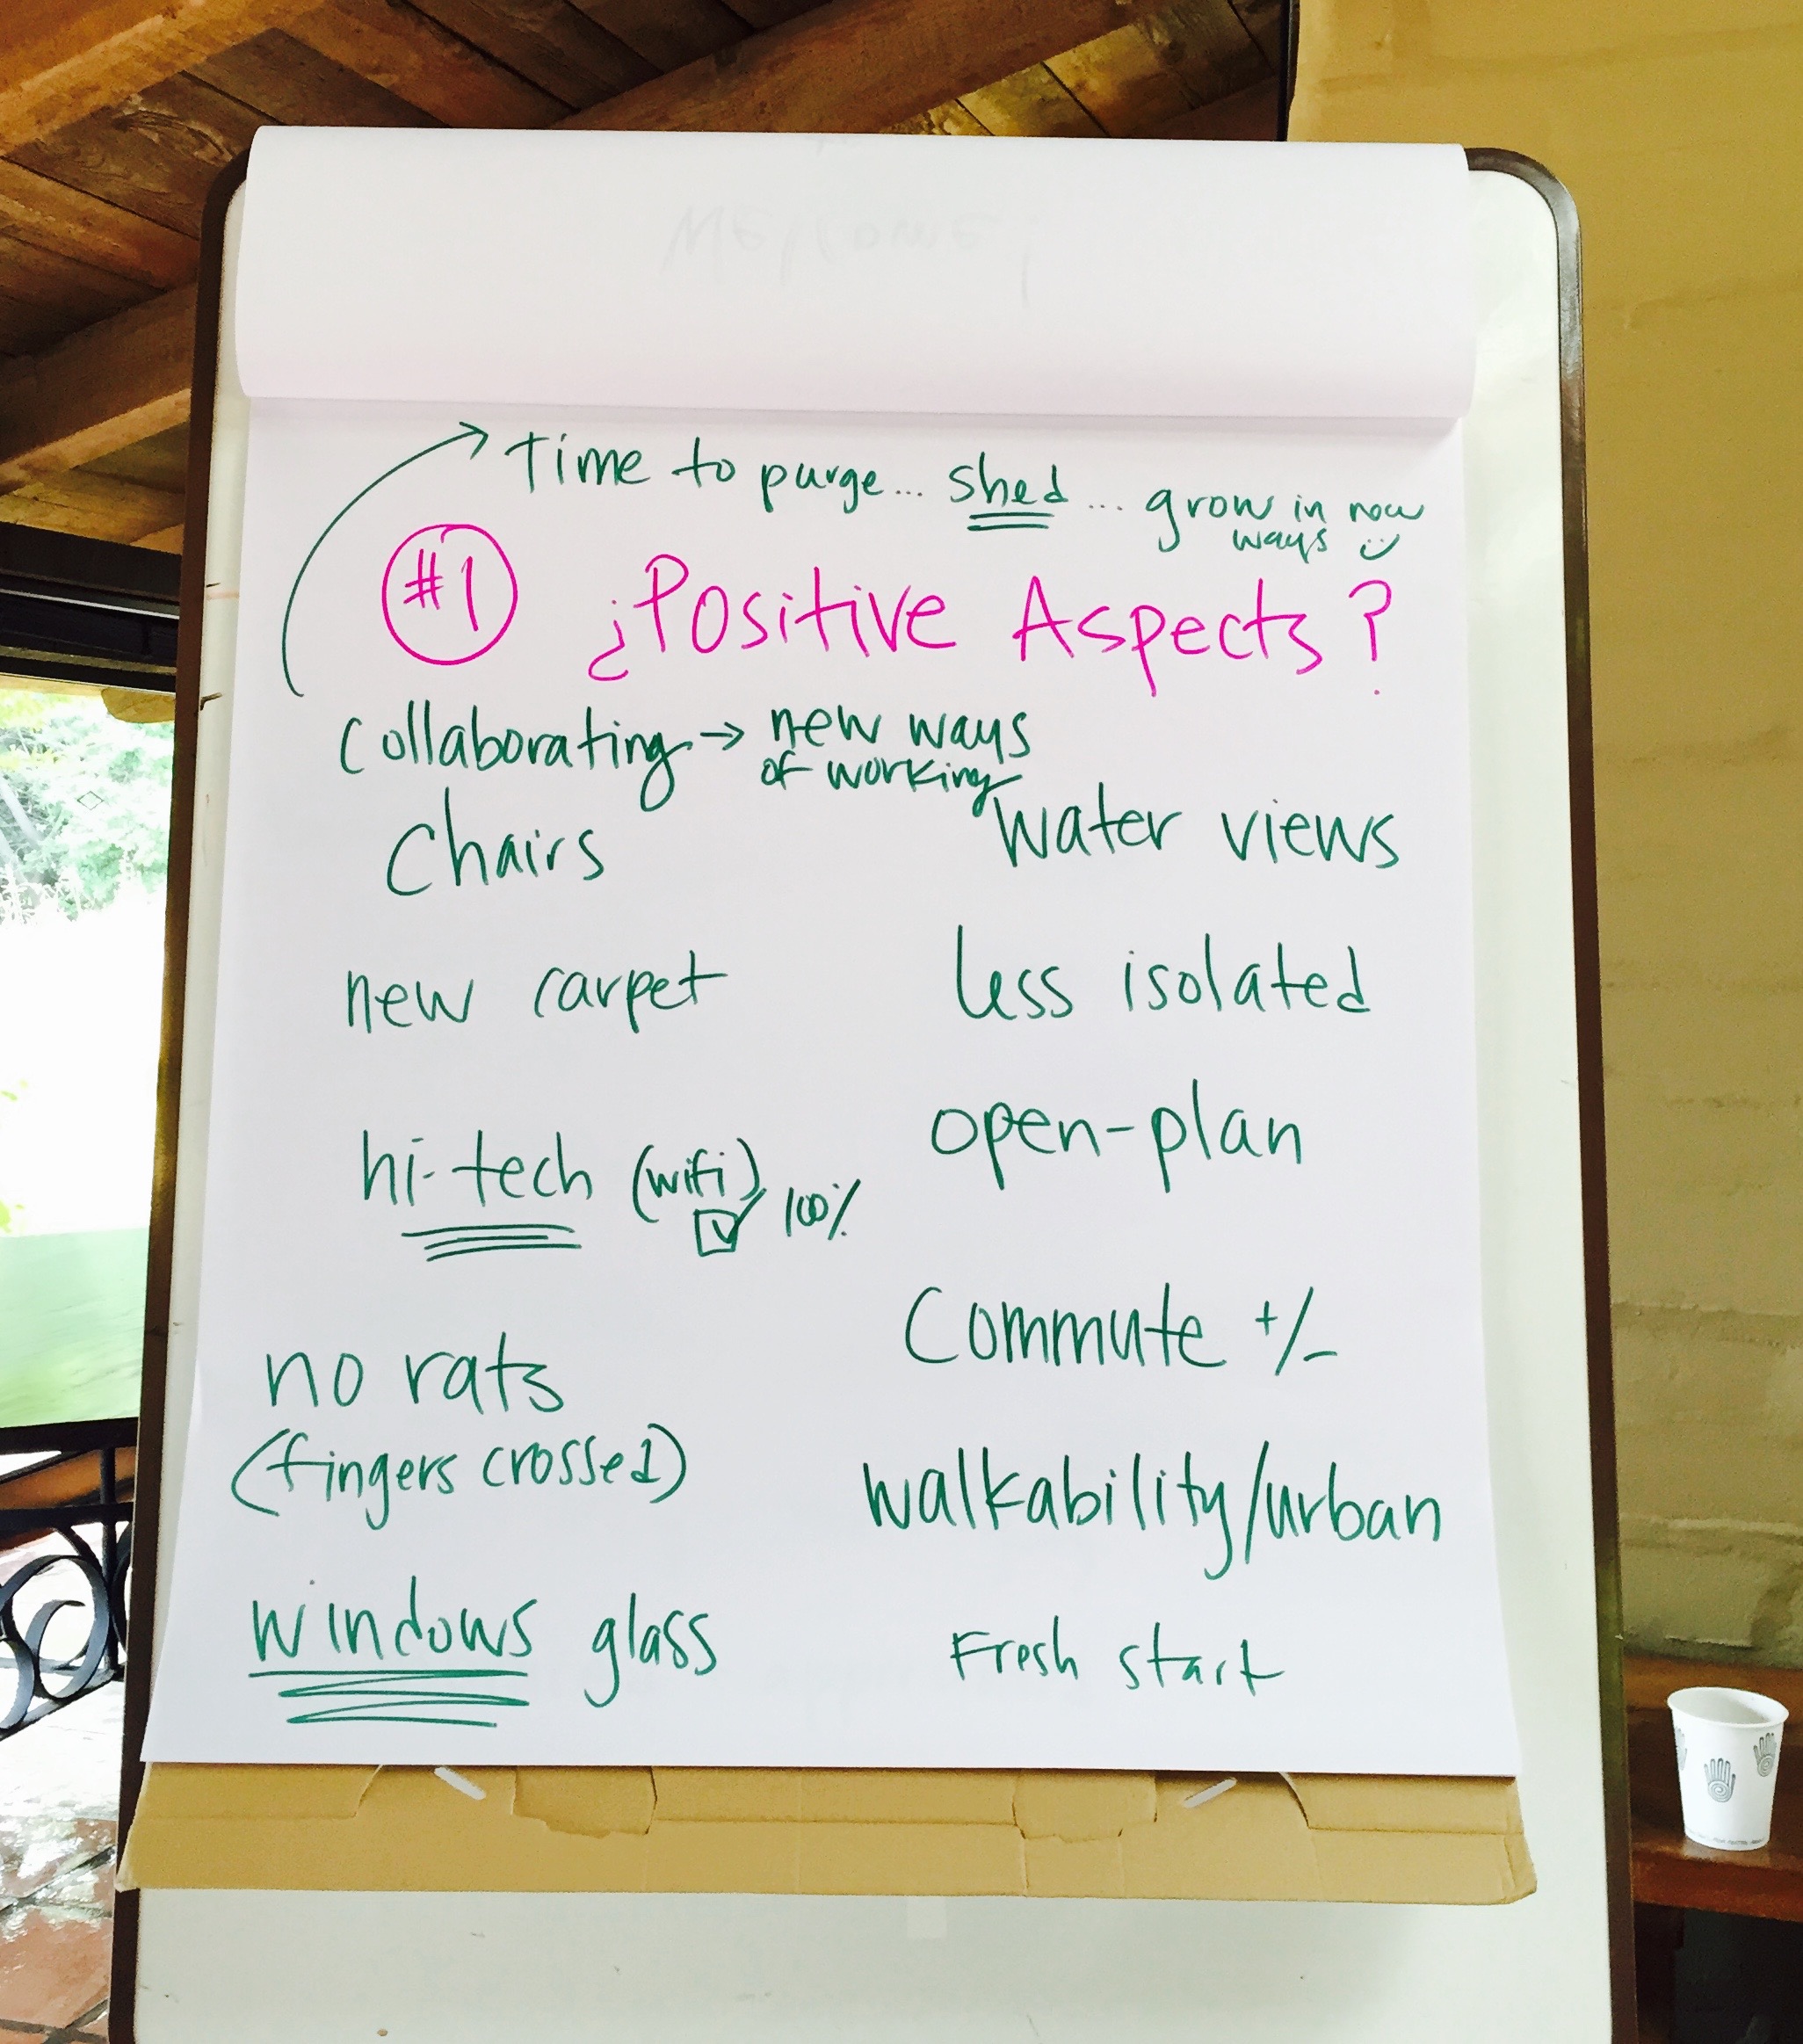 Welcome!
Time to purge... shed... grow in new
ways
#1 ¿Positive Aspects?
Collaborating → new ways
of working
Chairs
water views
new carpet
less isolated
hi-tech (wifi) 100%
open-plan
no rats
(fingers crossed)
Commute +/-
walkability/urban
windows glass
Fresh start